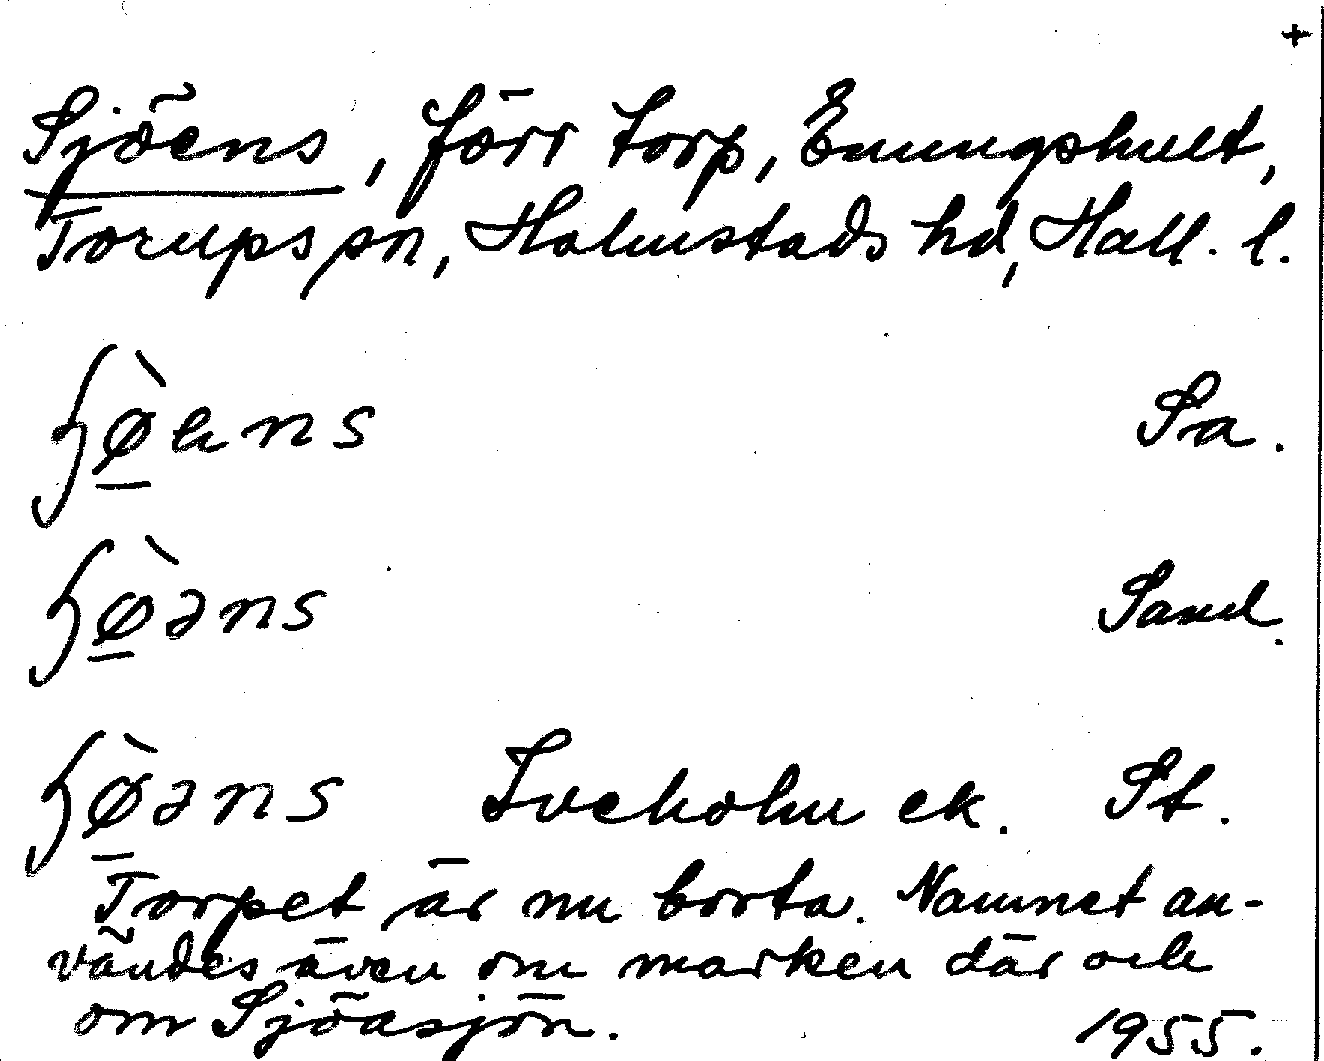 +
Sjöens, förr torp, Enungshult,
Torups sn, Halmstads hd, Hall. l.
ʃø̠̀ɛns Sa.
ʃø̠̀əns Sand.
ʃø̠̀əns Iveholm ek. St.
Torpet är nu borta. Namnet an-
vändes även om marken där och
om Sjöasjön. 1955.